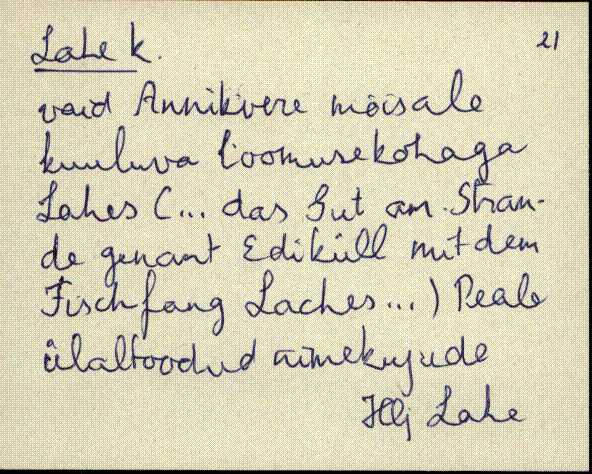 Lahe k.
21
vaid Annikvere mõisale
kuuluva loomusekohaga
Lahes (... das Gut am Stran-
de genant Ediküll mit dem
Fischfang Laches...) Peale
ülaltoodud nimekujude
Hlj Lahe